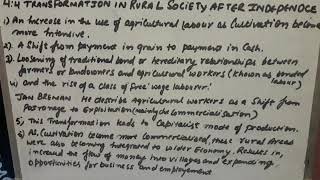 4:4 TRANSFORMATION IN RURAL SOCIETY AFTER INDEPENDENCE
1) An Increase in the use of agricultural labour as Cultivation became
more Intensive.
2). A Shift from payment in grain to payment in Cash.
3). Loosening of traditional bond or hereditary relationships between
farmers or landowners and agricultural workers (Known as bonded
labour)
4) and the rise of a class of free 'wage labourer'
JAN BREMAN He describe Agricultural workers as a Shift from
Patronage to Exploitation (mainly due Commercialisation)
5) This Transformation leads to Capitalist mode of production.
6) As Cultivation became more Commercialised, these Rural Areas
were also becoming Integrated to wider Economy. Results in,
increased the flow of money into villages and expanding
opportunities for business and employment